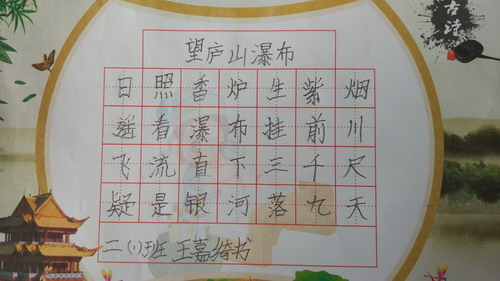 古诗
望庐山瀑布
日照香炉生紫烟
遥看瀑布挂前川
飞流直下三千尺
疑是银河落九天
二(1)班 王嘉绮书